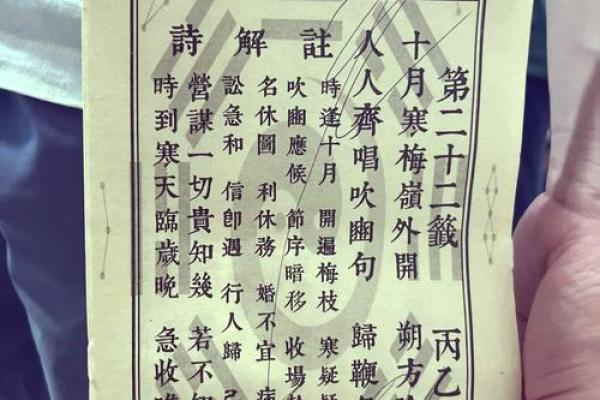 第二十二籤 丙乙
十月寒梅嶺外開 朔方
人人齊唱吹豳句 歸鞭
註解詩
時逢十月 開遍梅枝 寒疑
吹豳應候 節序暗移 收場
名休圖 利休務 婚不宜 病
訟急和 信卽遇 行人歸
營謀一切貴知幾 若不
時到寒天臨歲晚 急收